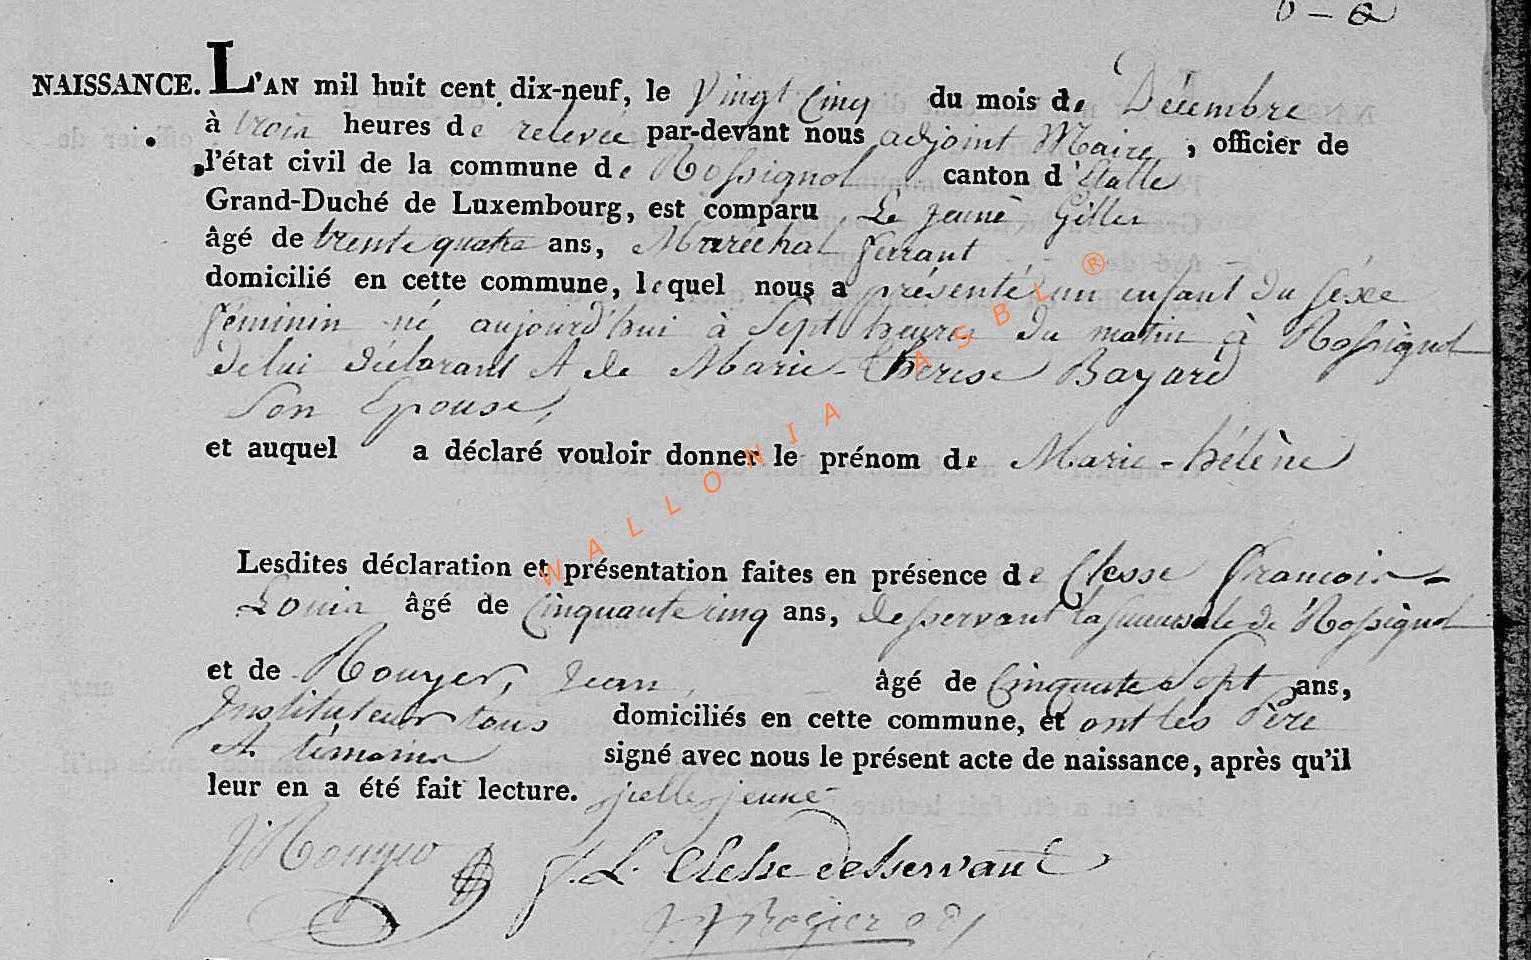 NAISSANCE. L'AN mil huit cent dix-neuf, le Vingt Cinq du mois de Décembre
à trois heures de relevée par-devant nous adjoint Maire, officier de
l'état civil de la commune de Rossignol canton d'Etalle
Grand-Duché de Luxembourg, est comparu Le jeune, Gilles
âgé de trente quatre ans, Maréchal ferrant
domicilié en cette commune, lequel nous a présenté un enfant du séxe
féminin né aujourd'hui à Sept heures du matin à Rossignol
de lui déclarant et de Marie-thérese Bayard
Son Epouse,
et auquel a déclaré vouloir donner le prénom de Marie-hélène
Lesdites déclaration et présentation faites en présence de Clesse françois-
Louis âgé de Cinquante cinq ans, desservant la succursale de Rossignol
et de Rouyer, Jean, âgé de Cinquante Sept ans,
Instituteur tous domiciliés en cette commune, et ont les Père
et témoins signé avec nous le présent acte de naissance, après qu'il
leur en a été fait lecture. jeune
J Rouyer
f. L. Clesse desservant
WALLONIA ASBL ®